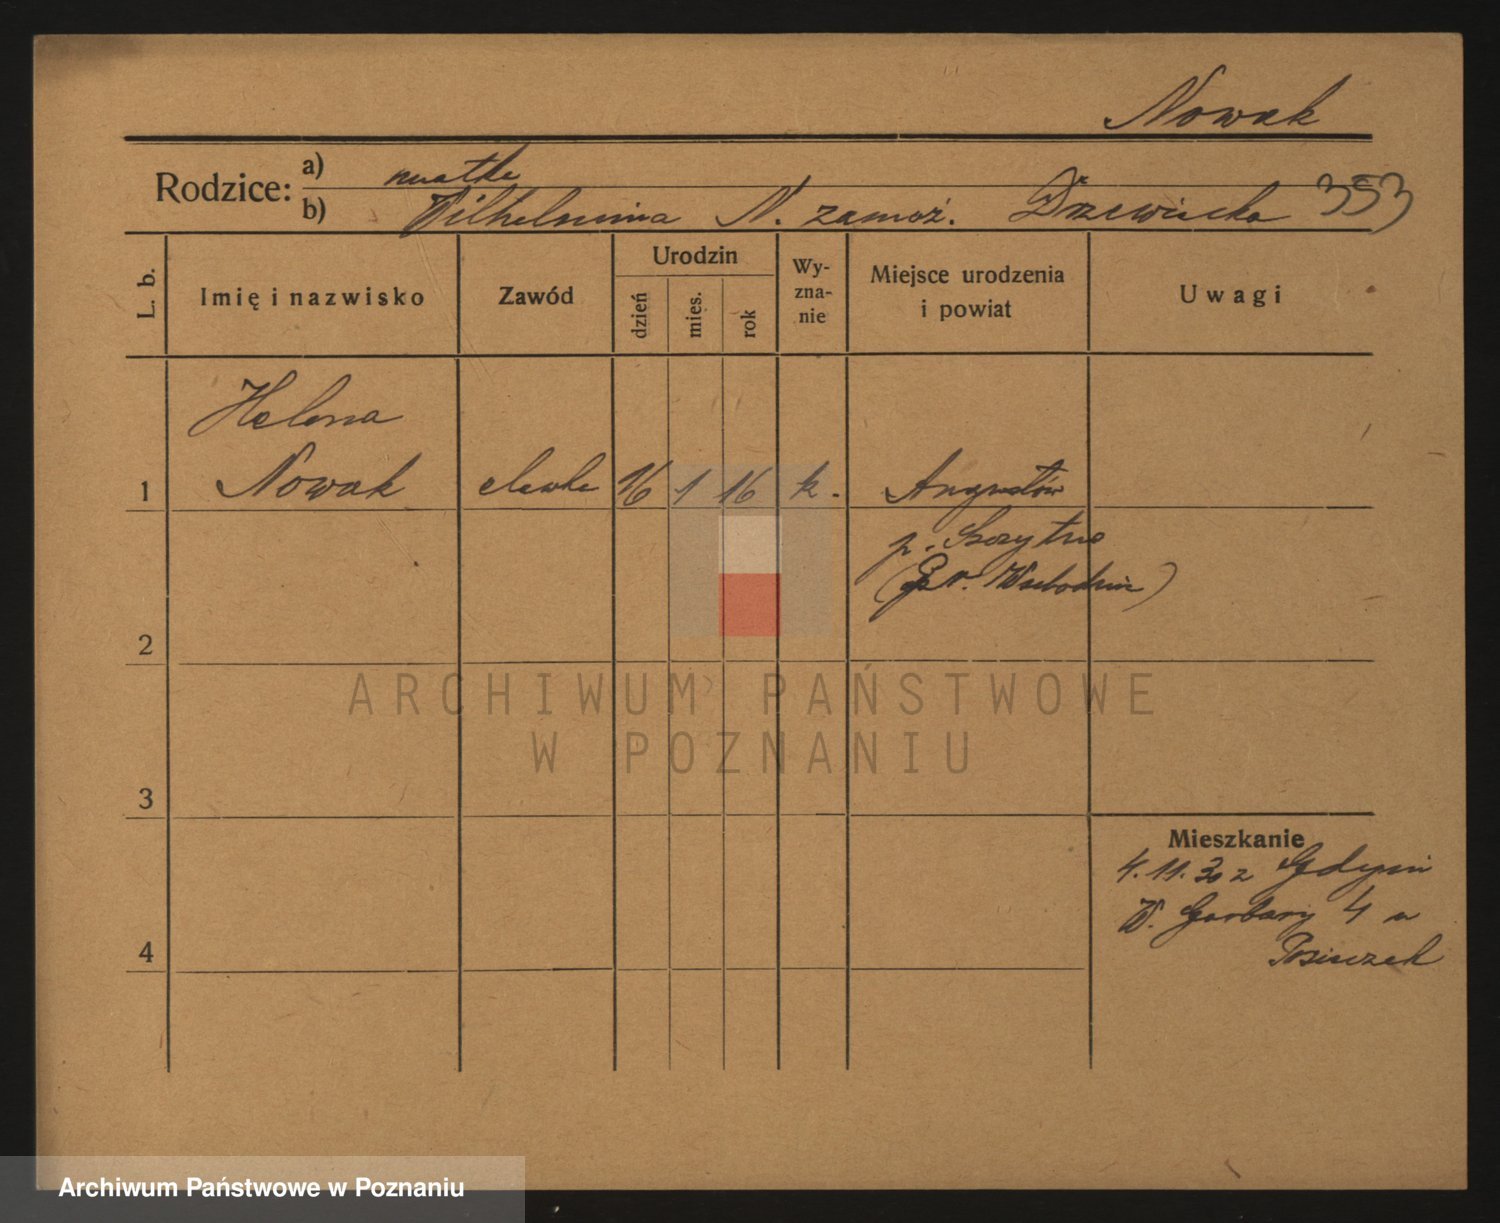 Nowak
Rodzice: a) matka
b) Wilhelmina N. zamoż. Drzewiecka 353
L. b.
Imię i nazwisko
Zawód
Urodzin
dzień
mies.
rok
Wy-
zna-
nie
Miejsce urodzenia
i powiat
Uwagi
Helena
1 Nowak elewka 16 1 16 k. Augustów
p. Szczytno
2
3
Mieszkanie
4.11.30 z Gdyni
W. Garbary 4 u
4
ARCHIWUM PAŃSTWOWE
W POZNANIU
Archiwum Państwowe w Poznaniu